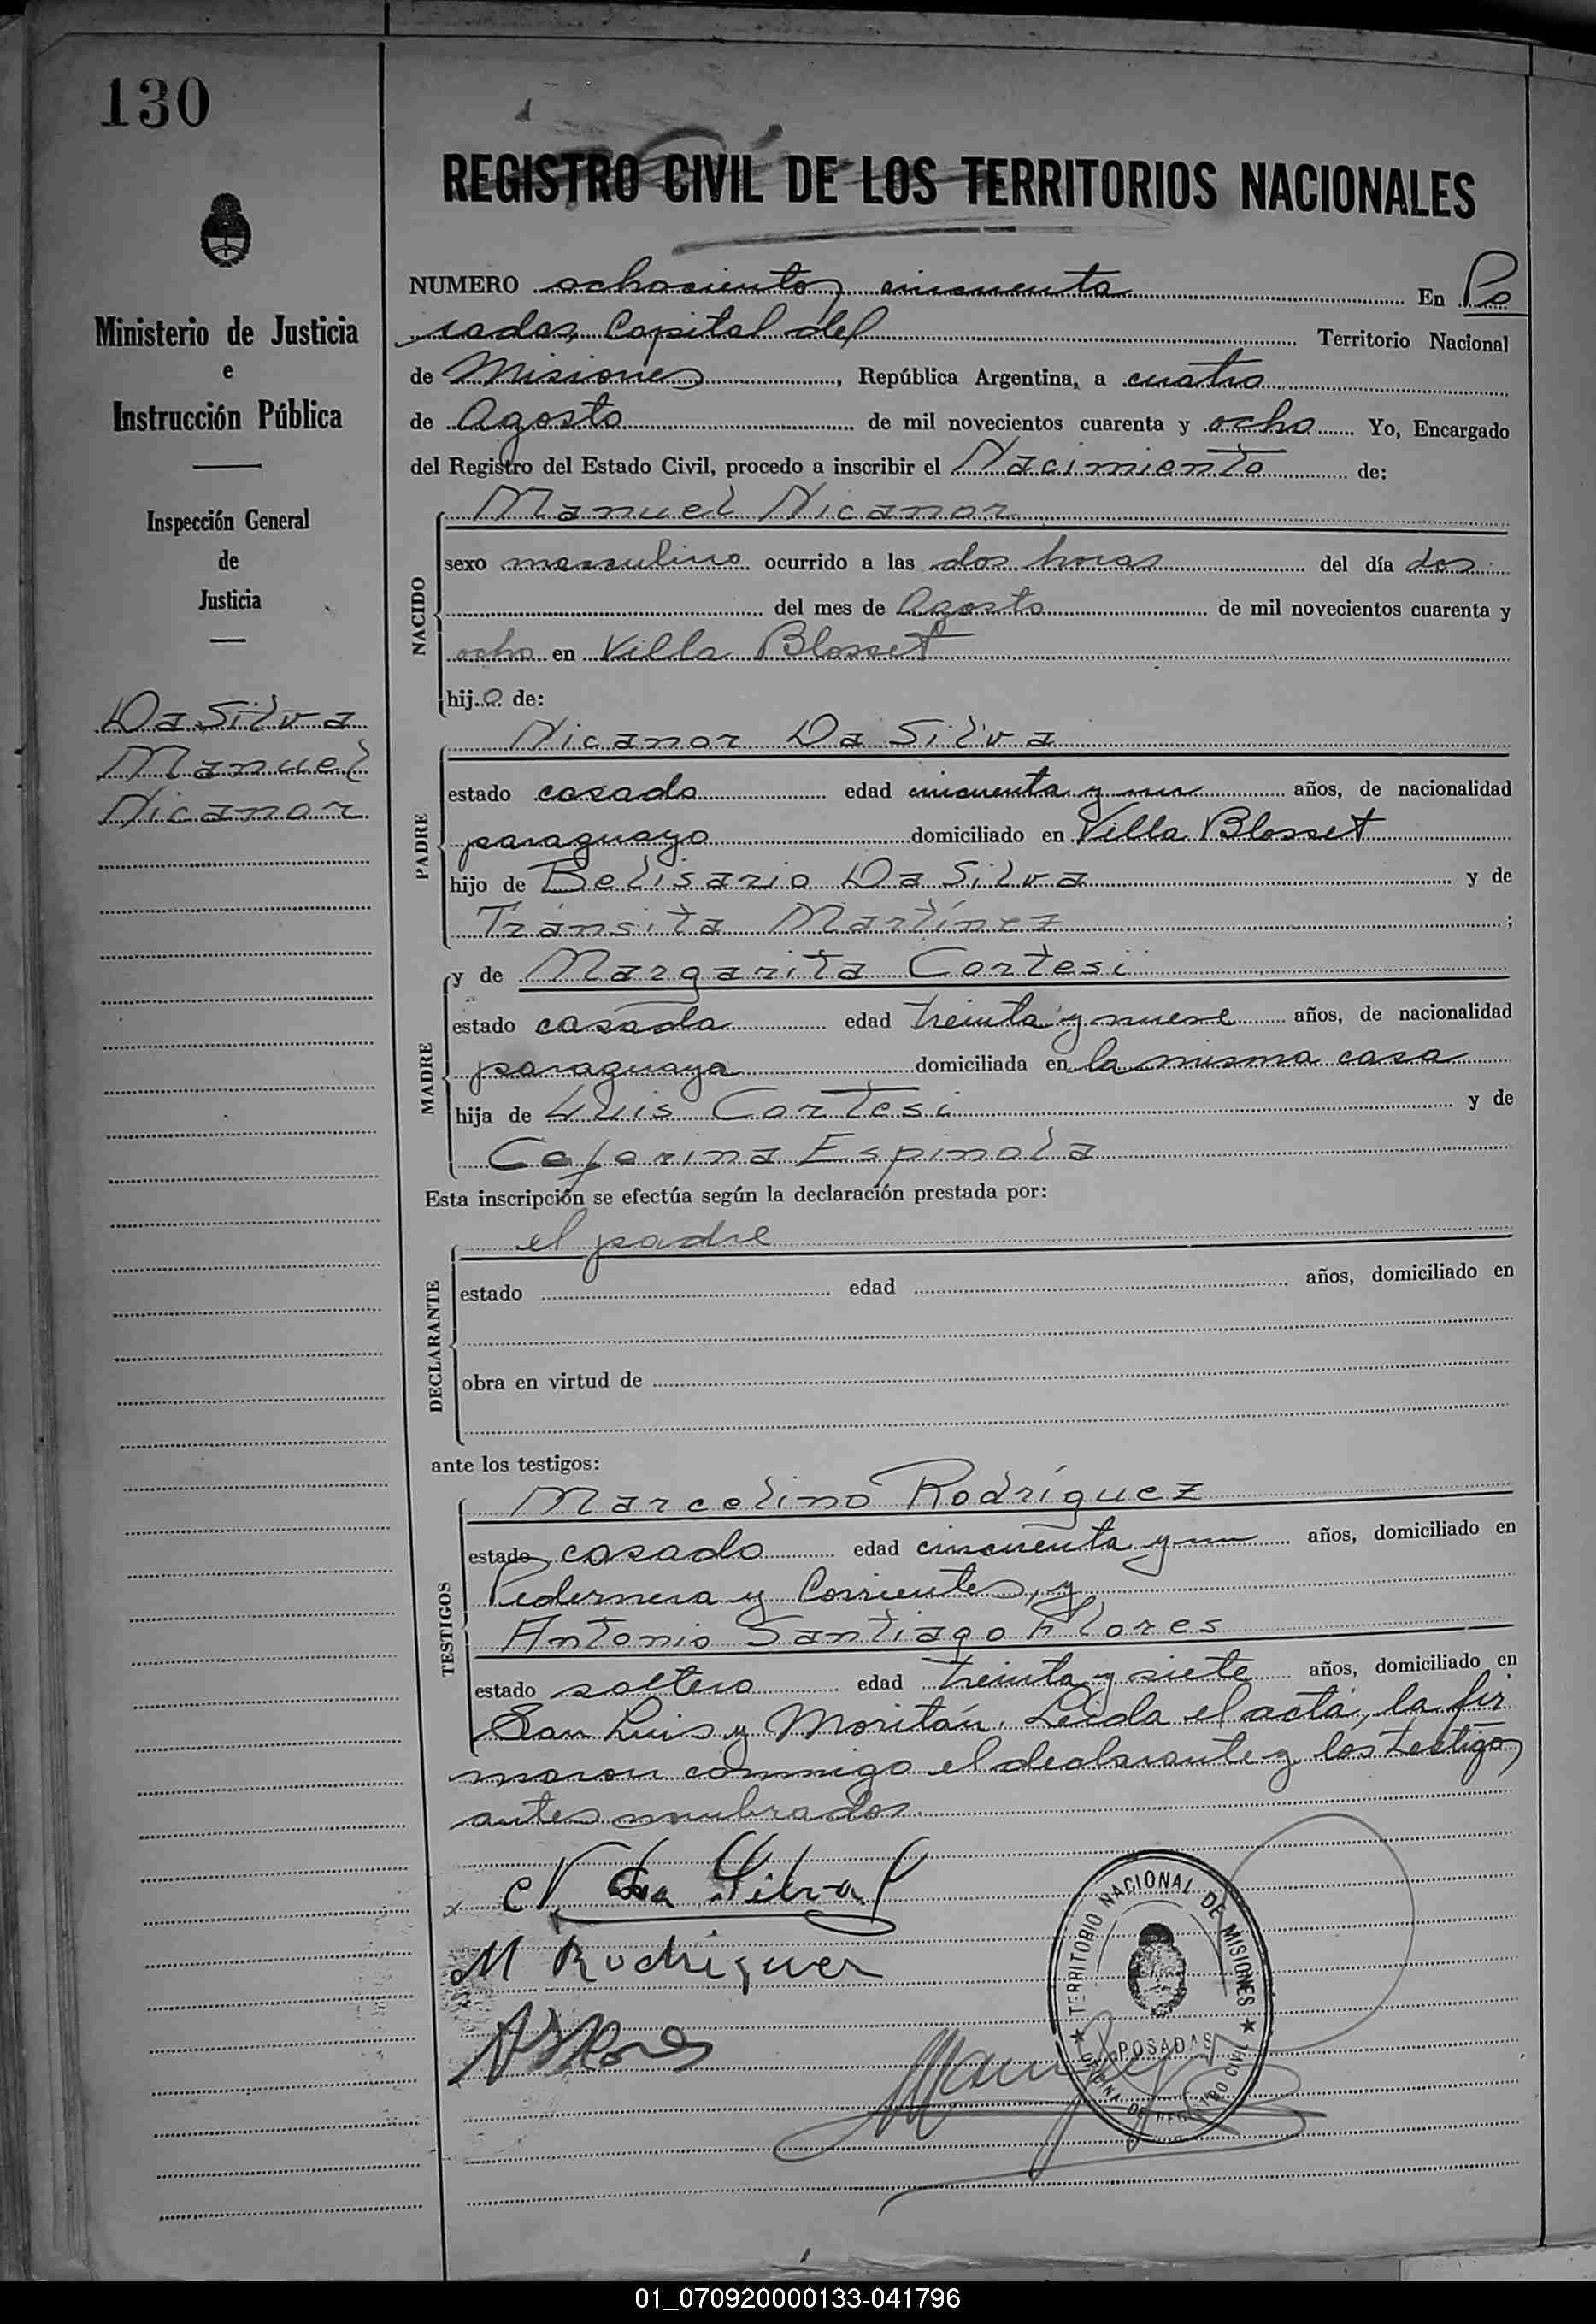 130
REGISTRO CIVIL DE LOS TERRITORIOS NACIONALES
Ministerio de Justicia
e
Instrucción Pública
Inspección General
de
Justicia
Da Silva
Manuel
Nicanor
NUMERO ochocientos cincuenta En Po
sadas, Capital del Territorio Nacional
de Misiones, República Argentina, a cuatro
de Agosto de mil novecientos cuarenta y ocho Yo, Encargado
del Registro del Estado Civil, procedo a inscribir el Nacimiento de:
NACIDO
Manuel Nicanor
sexo masculino ocurrido a las dos horas del día dos
del mes de Agosto de mil novecientos cuarenta y
ocho en Villa Blosset
hijo de:
PADRE
Nicanor Da Silva
estado casado edad cincuenta y un años, de nacionalidad
paraguayo domiciliado en Villa Blosset
hijo de Belisario Da Silva y de
Tránsita Martínez;
MADRE
y de Margarita Cortesi
estado casada edad treinta y nueve años, de nacionalidad
paraguaya domiciliada en la misma casa
hija de Luis Cortesi y de
Ceferina Espinola
Esta inscripción se efectúa según la declaración prestada por:
DECLARANTE
el padre
estado edad años, domiciliado en
obra en virtud de
ante los testigos:
TESTIGOS
Marcelino Rodríguez
estado casado edad cincuenta y un años, domiciliado en
Pedernera y Corrientes, y
Antonio Santiago Flores
estado soltero edad treinta y siete años, domiciliado en
San Luis y Moritán. Leída el acta, la fir
maron conmigo el declarante y los testigos
antes nombrados.
N. Da Silva
M Rodriguez
A S Flores
TERRITORIO NACIONAL DE MISIONES
POSADAS
OFICINA DE REGISTRO CIVIL
01_070920000133-041796